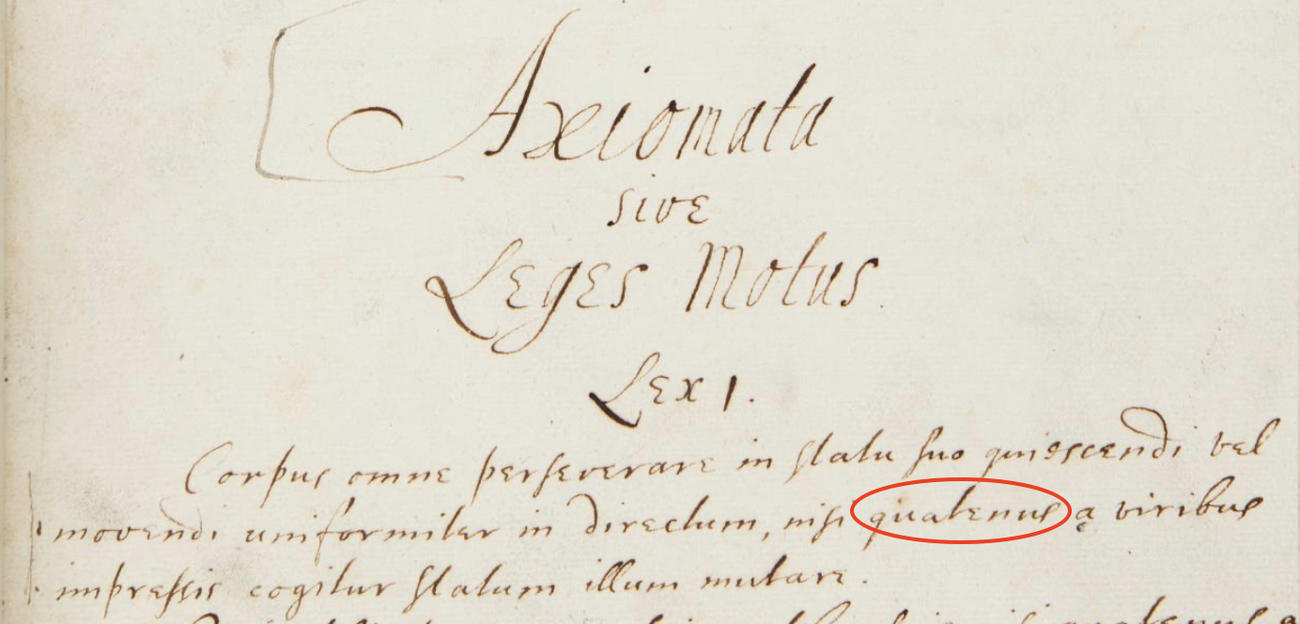 Axiomata
sive
Leges Motus.
Lex 1.
Corpus omne perseverare in statu suo quiescendi vel
movendi uniformiter in directum, nisi quatenus a viribus
impressis cogitur statum illum mutare.
quatenus a